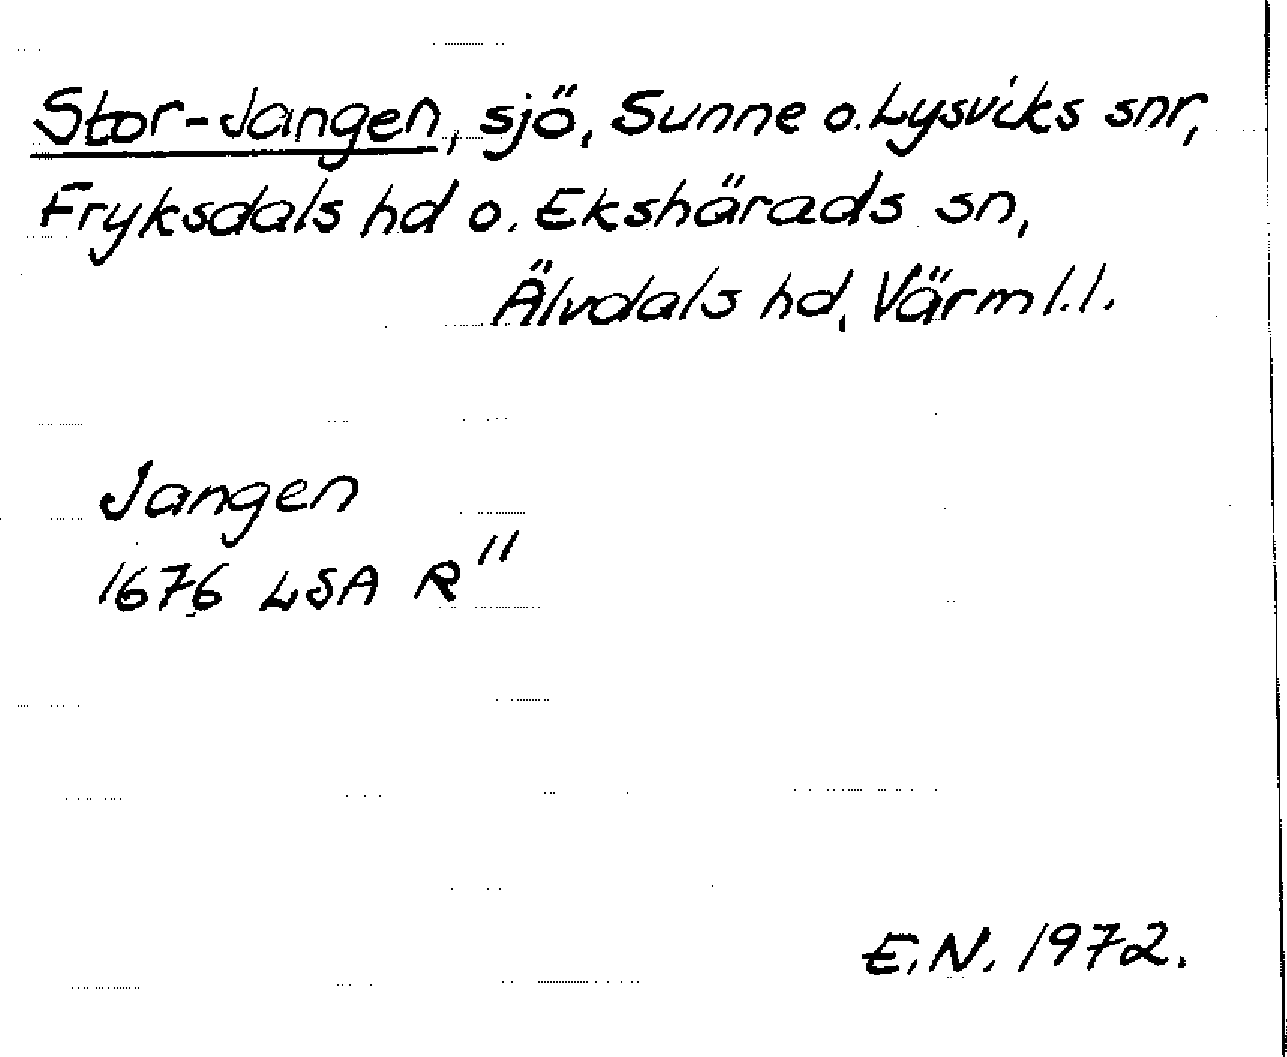 Stor-Jangen, sjö, Sunne o. Lysviks snr,
Fryksdals hd o. Ekshärads sn,
Älvdals hd, Värml.l.
Jangen
1676 LSA R"
E.N. 1972.